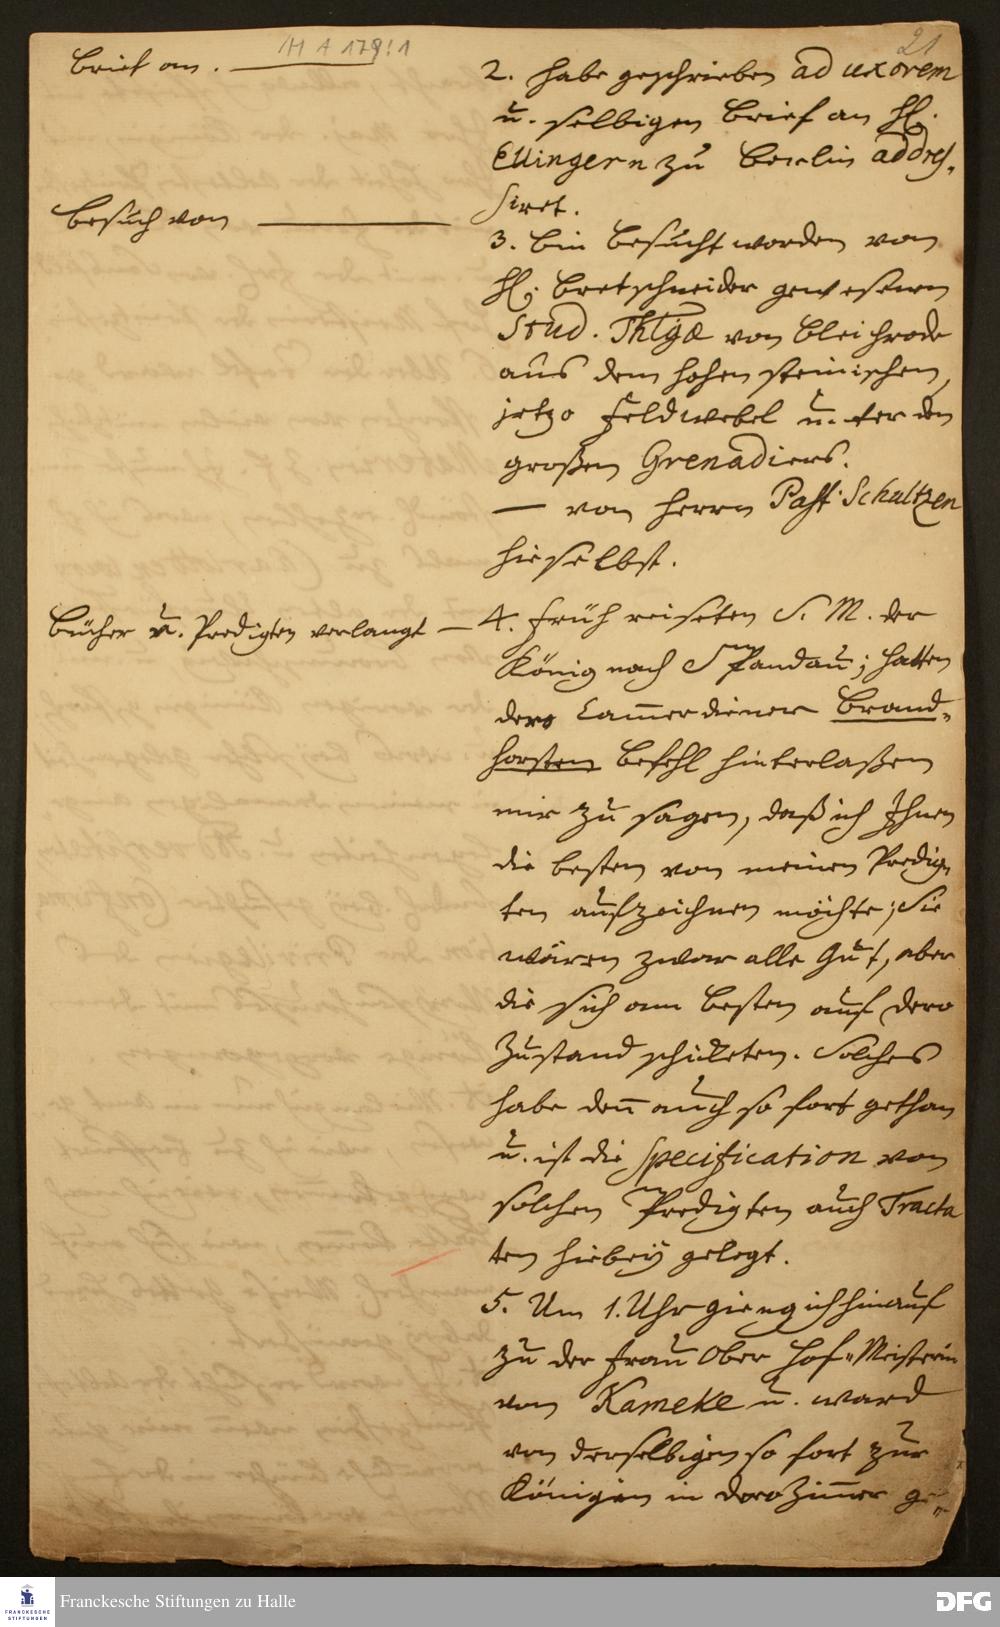 H A 179:1
21
Brief an.
2. habe geschrieben ad uxorem
u. selbigen Brief an H.
Ellingern zu Berlin addres-
siret.
Besuch von
3. Bin besucht worden von
H. Bretschneider gewesenen
Stud. Thlgæ von Bleichrode
aus dem Hohensteinischen,
jetzo Feldwebel unter den
großen Grenadiers.
— von Herrn Past: Schultzen
hieselbst.
Bücher u. Predigten verlangt —
4. Früh reiseten S. M. der
König nach Spandau; hatten
dero Cammerdiener Brand-
horsten Befehl hinterlaßen
mir zu sagen, daß ich Ihnen
die besten von meinen Predig-
ten aufzeichnen möchte; Sie
wären zwar alle gut, aber
die sich am besten auf dero
Zustand schickten. Solches
habe den auch so fort gethan
u. ist die Specification von
solchen Predigten auch Tracta
ten hiebey gelegt.
5. Um 1. Uhr gieng ich hinauf
zu der Frau Ober Hof-Meisterin
von Kameke u. ward
von derselbigen so fort zur
Königin in dero Zimer ge-
FRANCKESCHE
STIFTUNGEN
Franckesche Stiftungen zu Halle
DFG